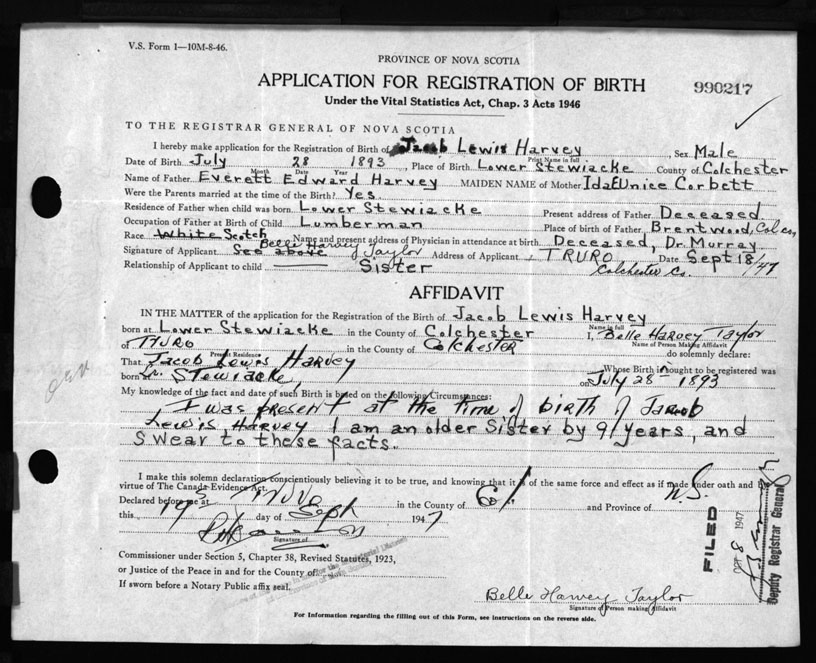 V.S. Form 1—10M-8-46.
PROVINCE OF NOVA SCOTIA
APPLICATION FOR REGISTRATION OF BIRTH
990217
Under the Vital Statistics Act, Chap. 3 Acts 1946
TO THE REGISTRAR GENERAL OF NOVA SCOTIA
I hereby make application for the Registration of Birth of Jacob Lewis Harvey, Sex Male
Print Name in full
Date of Birth July 28 1893, Place of Birth Lower Stewiacke County of Colchester
Month Date Year
Name of Father Everett Edward Harvey MAIDEN NAME of Mother Ida Eunice Corbett
Were the Parents married at the time of the Birth? Yes
Residence of Father when child was born Lower Stewiacke Present address of Father Deceased.
Occupation of Father at Birth of Child Lumberman Place of birth of Father Brentwood, Col co,
Race White Scotch Name and present address of Physician in attendance at birth Deceased, Dr. Murray
Signature of Applicant See above Belle Harvey Taylor Address of Applicant TRURO Date Sept 18/47
Relationship of Applicant to child Sister Colchester Co.
AFFIDAVIT
IN THE MATTER of the application for the Registration of the Birth of Jacob Lewis Harvey
Name in full
born at Lower Stewiacke in the County of Colchester I, Belle Harvey Taylor
Name of Person Making Affidavit
of Truro in the County of Colchester do solemnly declare:
Present Residence
That Jacob Lewis Harvey Whose Birth is sought to be registered was
born at Lr. Stewiacke, on July 28th 1893
My knowledge of the fact and date of such Birth is based on the following Circumstances:
I was present at the time of birth of Jacob
Lewis Harvey I am an older Sister by 9½ years, and
Swear to these facts.
I make this solemn declaration conscientiously believing it to be true, and knowing that it is of the same force and effect as if made under oath and by
virtue of The Canada Evidence Act.
Declared before me at Truro in the County of Col and Province of N.S.
this 19 day of Sept 1947
Signature of
Commissioner under Section 5, Chapter 38, Revised Statutes, 1923,
or Justice of the Peace in and for the County of
If sworn before a Notary Public affix seal.
FILED
OCT 8 1947
Deputy Registrar General
Belle Harvey Taylor
Signature of Person making Affidavit
For Information regarding the filling out of this Form, see instructions on the reverse side.